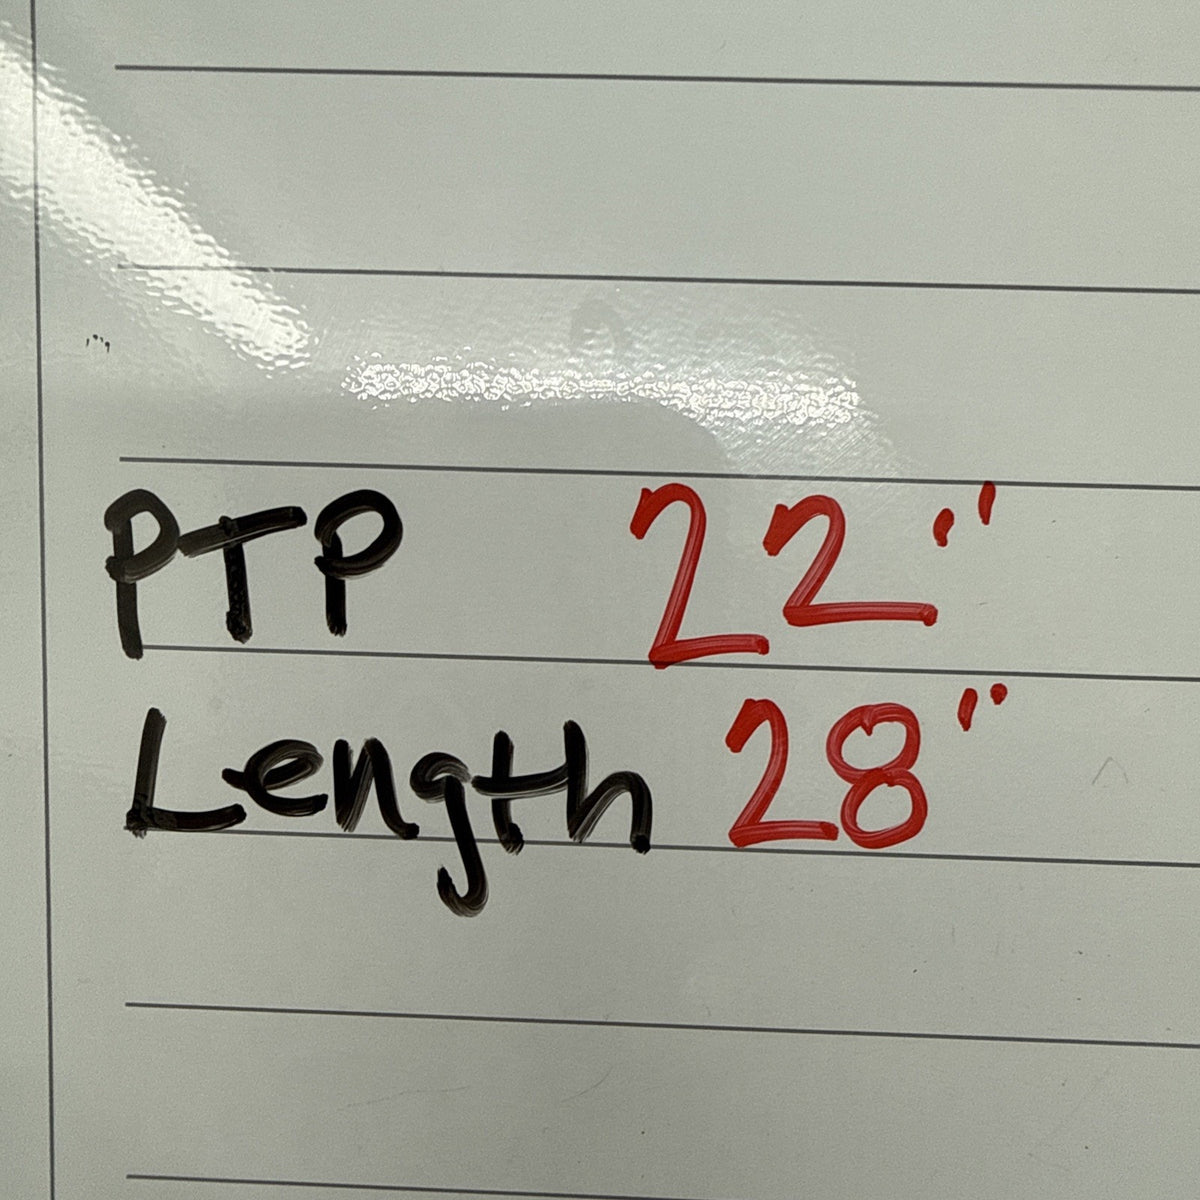 PTP 22"
Length 28"